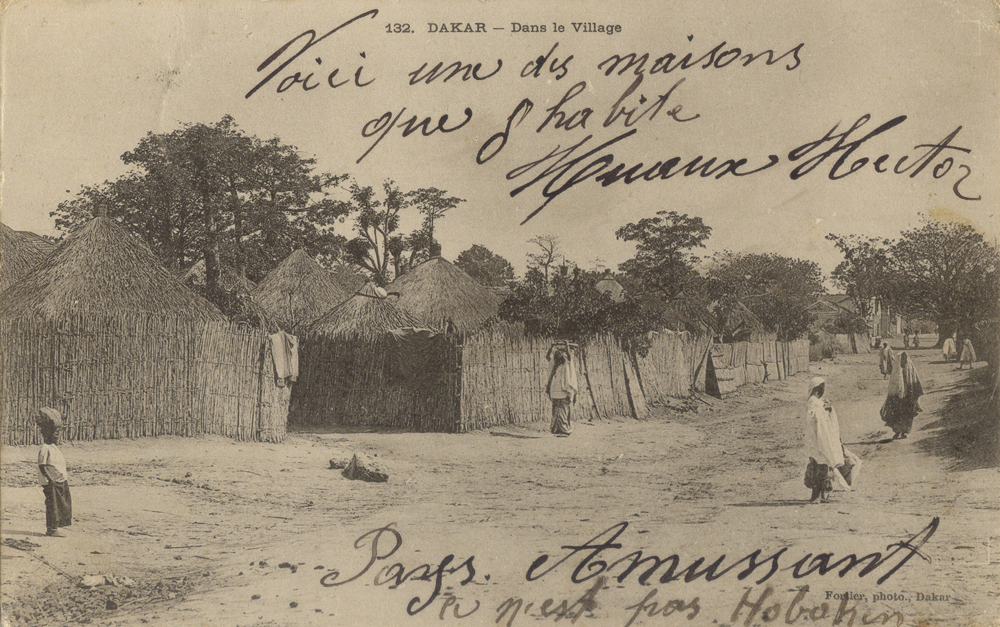 132. DAKAR — Dans le Village
Voici une des maisons
que j habite
Huaux Hector
Pays. Amussant
ce n'est pas Hoboken
Fortier, photo., Dakar